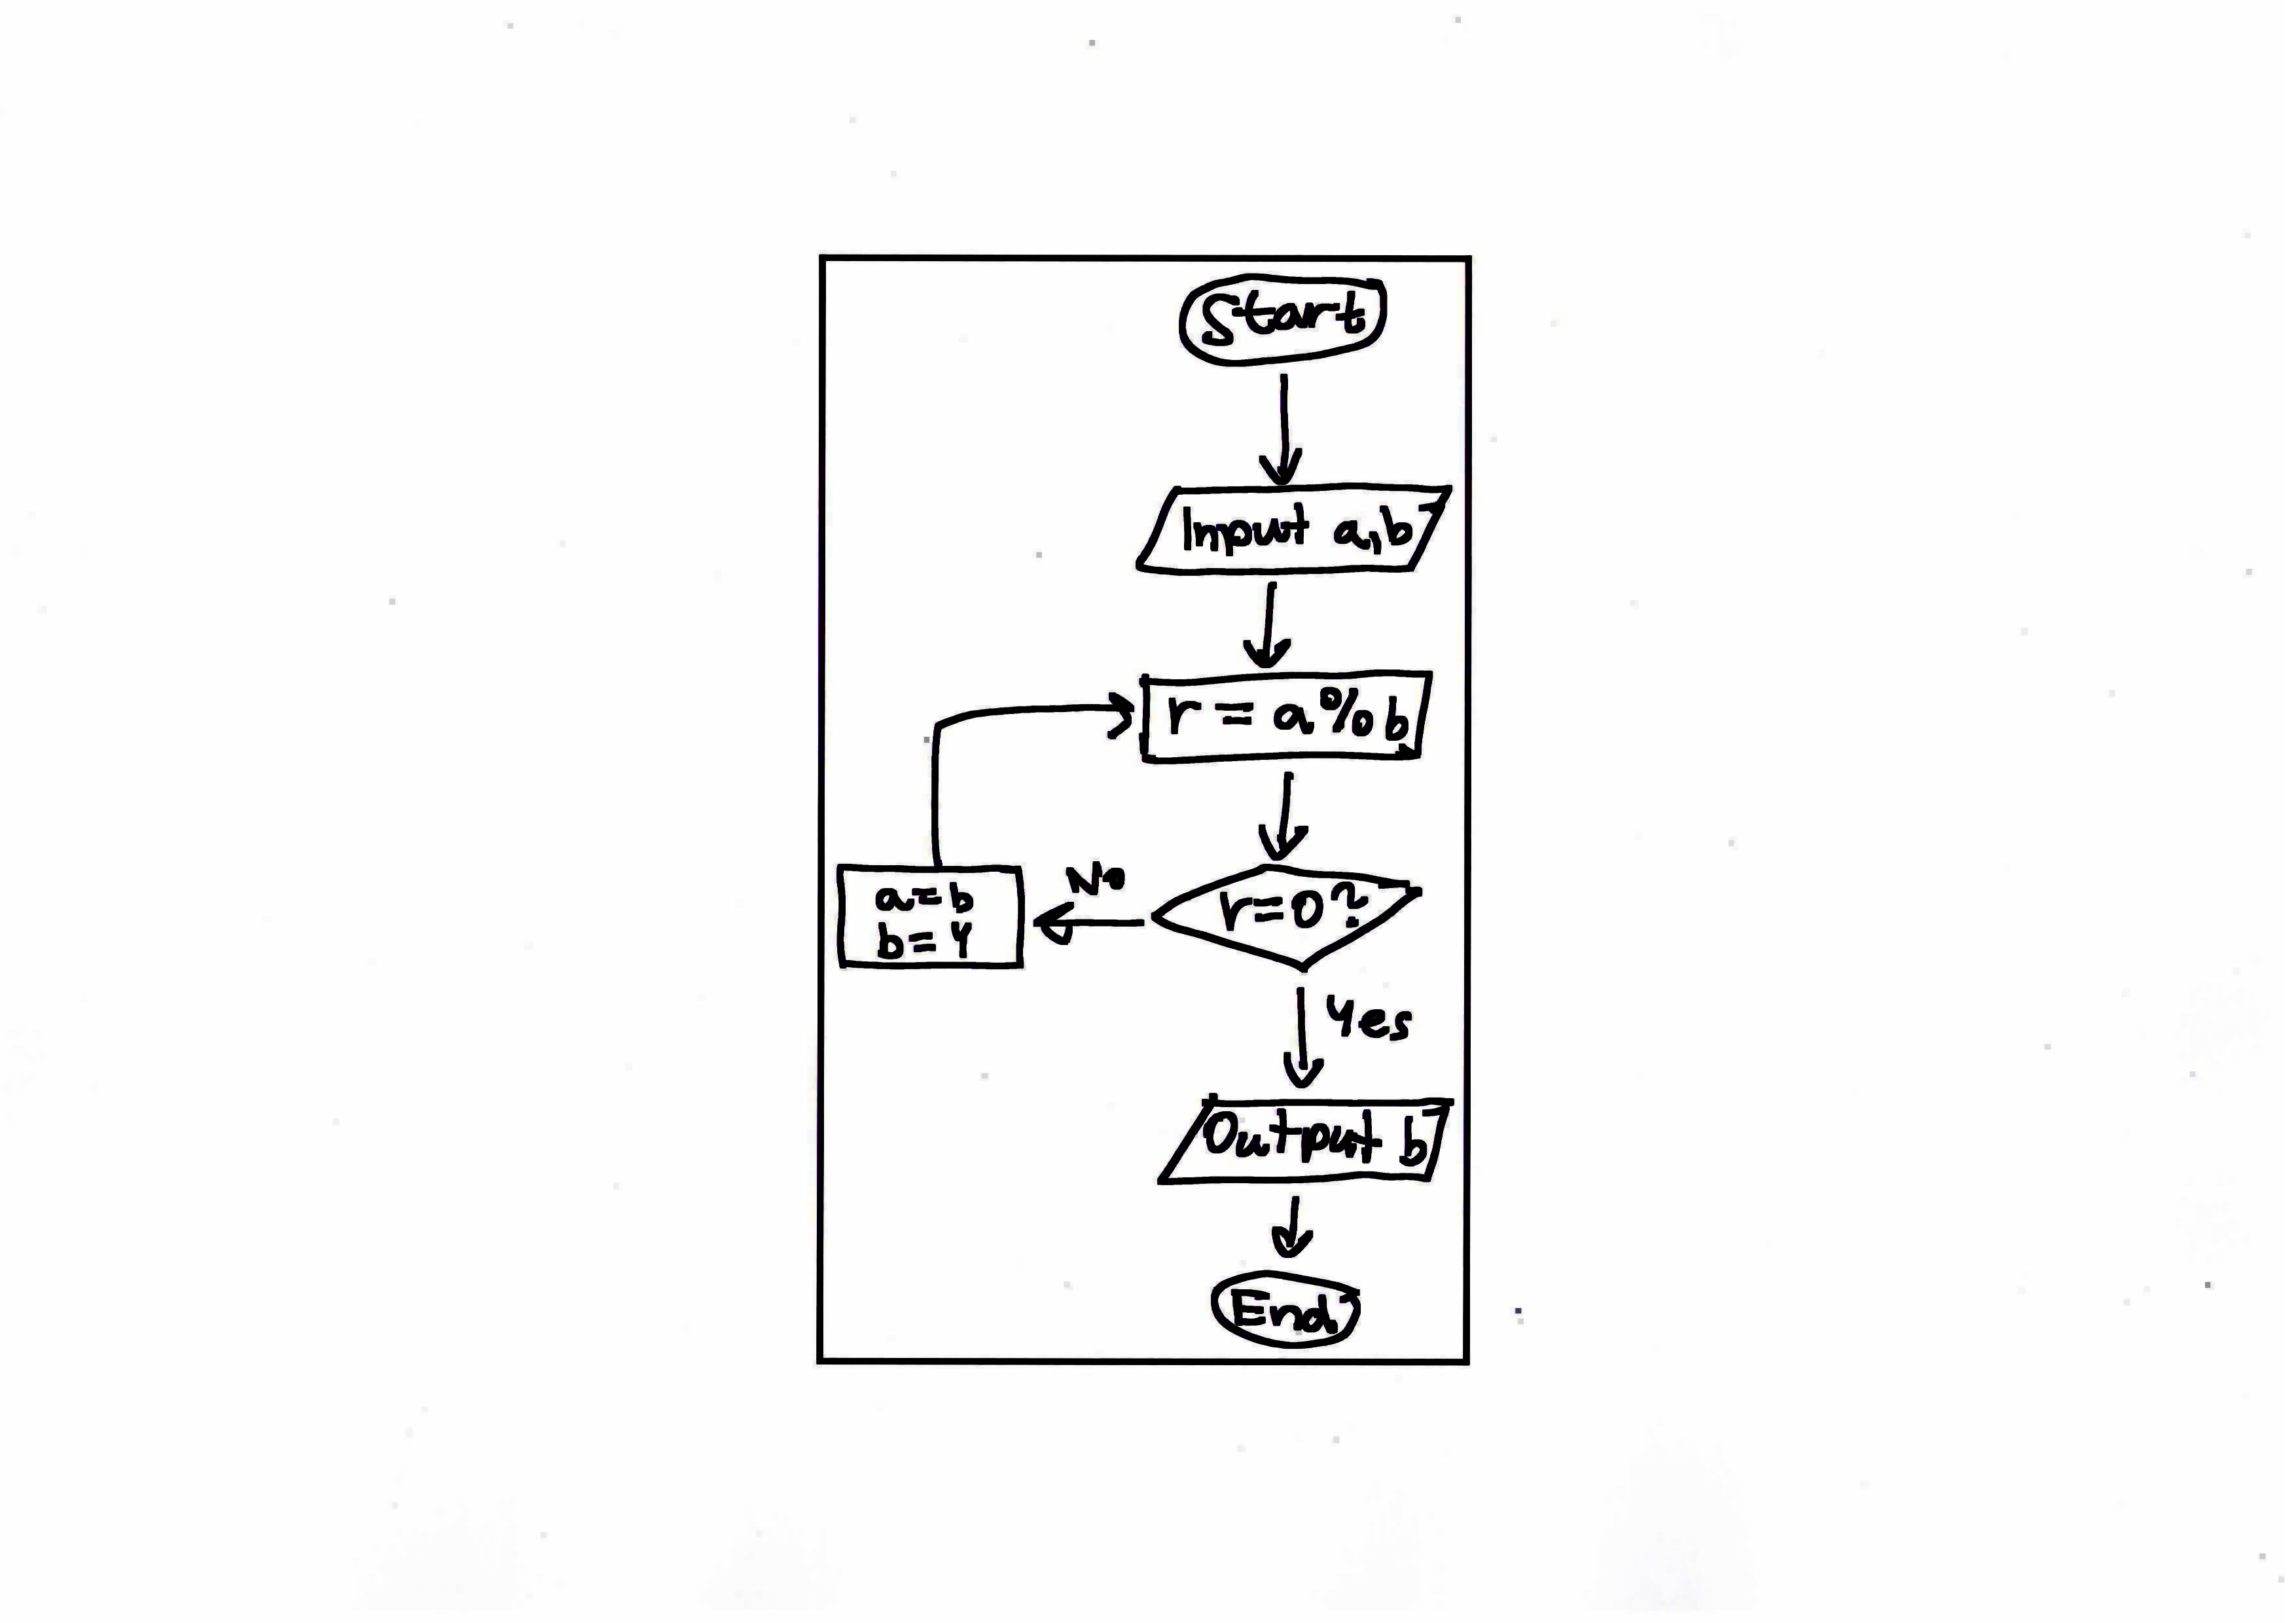 Start
Input a,b
r = a%b
r=0?
No
a=b
b=4
Yes
Output b
End